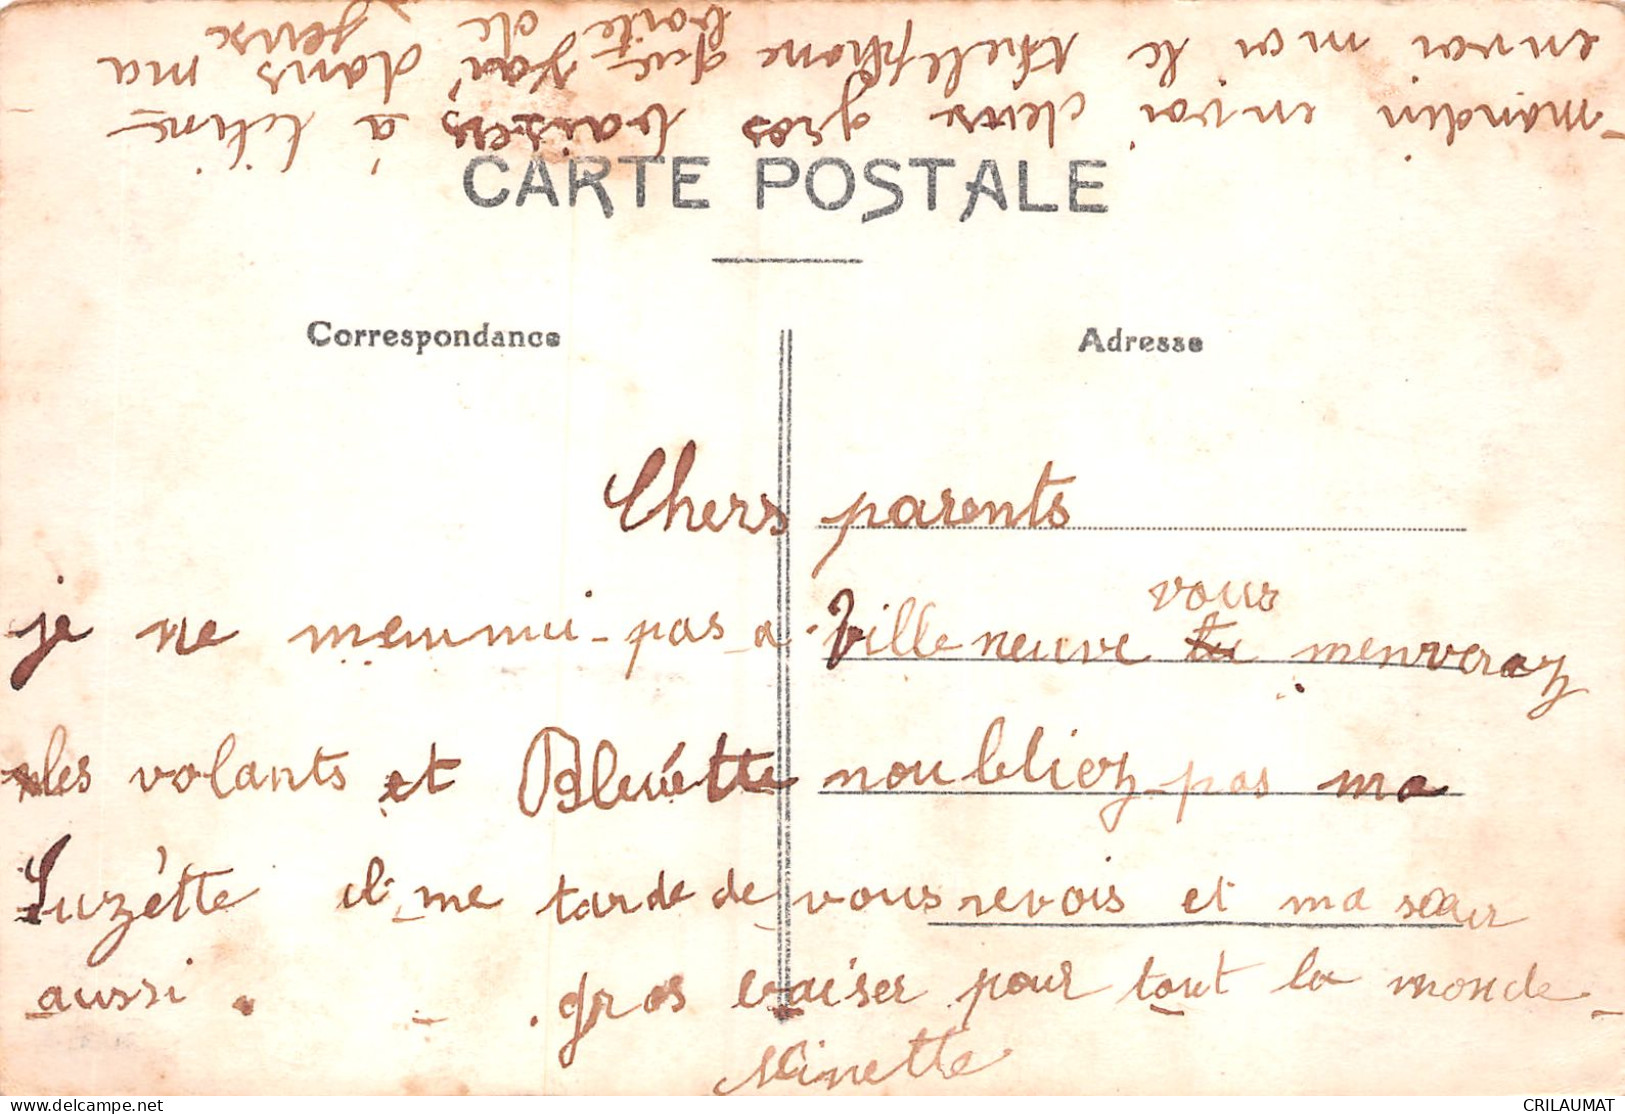 CARTE POSTALE
Correspondance
Adresse
Chers parents
je ne meunnui-pas a Villeneuve tu vous menveraz
les volants et Bleuétte noubliez-pas ma
Suzétte il me tarde de vous revois et ma sœur
aussi. gros baiser pour tout la monde
Ninette
mandin envoi deux gros baisers à titine
envoi moi le theléphone que j'ai dans ma
boite de
CRILAUMAT